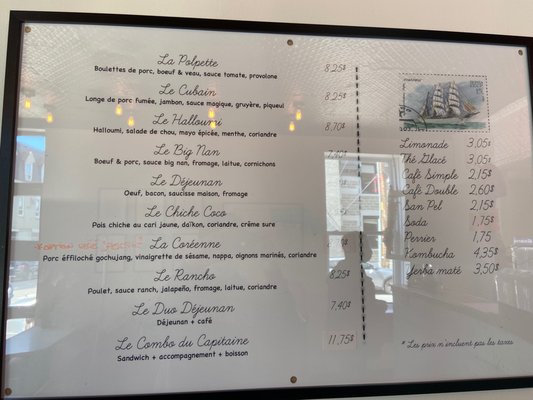 La Polpette 8,25$
Boulettes de porc, boeuf & veau, sauce tomate, provolone
Le Cubain 8,25$
Longe de porc fumée, jambon, sauce magique, gruyère, piqueul
Le Halloumi 8,70$
Halloumi, salade de chou, mayo épicée, menthe, coriandre
Le Big Nan
Boeuf & porc, sauce big nan, fromage, laitue, cornichons
Le Déjeunan
Oeuf, bacon, saucisse maison, fromage
Le Chiche Coco
Pois chiche au cari jaune, daïkon, coriandre, crème sure
La Coréenne
Porc éffiloché gochujang, vinaigrette de sésame, nappa, oignons marinés, coriandre
Le Rancho 8,25$
Poulet, sauce ranch, jalapeño, fromage, laitue, coriandre
Le Duo Déjeunan 7,40$
Déjeunan + café
Le Combo du Capitaine 11,75$
Sandwich + accompagnement + boisson
Limonade 3,05$
Thé Glacé 3,05$
Café Simple 2,15$
Café Double 2,60$
San Pel 2,15$
Soda 1,75$
Perrier 1,75
Kombucha 4,35$
Yerba maté 3,50$
* Les prix n'incluent pas les taxes